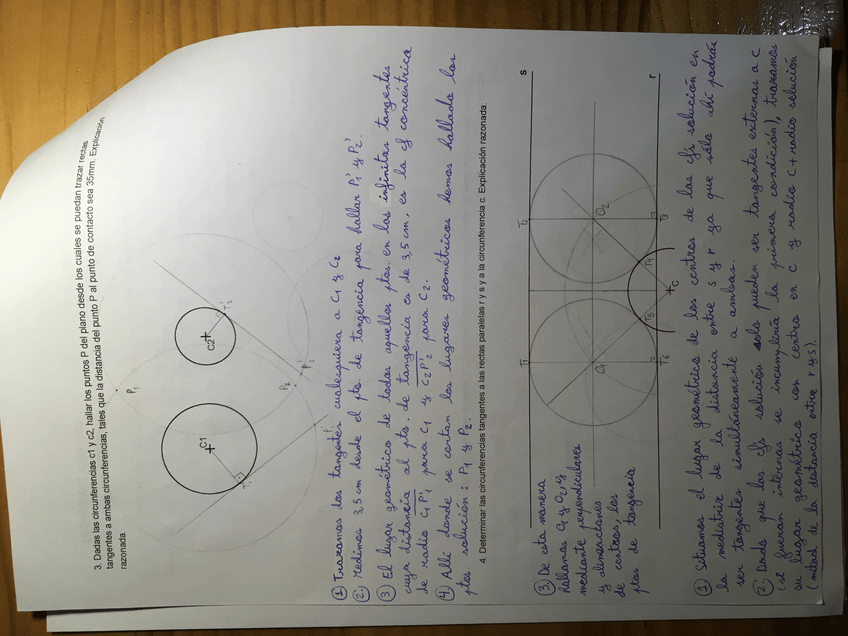 3. Dadas las circunferencias c1 y c2, hallar los puntos P del plano desde los cuales se puedan trazar rectas
tangentes a ambas circunferencias, tales que la distancia del punto P al punto de contacto sea 35mm. Explicación
razonada.
P₁
c1
c2
T₁'
T₂'
P₂
P₂'
P₁'
① Trazamos dos tangentes cualesquiera a C₁ y C₂
② Medimos 3,5 cm desde el pto. de tangencia para hallar P₁' y P₂'.
③ El lugar geométrico de todos aquellos ptos. en las infinitas tangentes
cuya distancia al pto. de tangencia es de 3,5 cm, es la cf concéntrica
de radio C₁P₁' para C₁ y C₂P₂' para C₂.
④ Allí donde se cortan los lugares geométricos hemos hallado los
ptos. solución: P₁ y P₂.
4. Determinar las circunferencias tangentes a las rectas paralelas r y s y a la circunferencia c. Explicación razonada.
s
r
O₁
O₂
T₅
T₄
T₆
T₃
c
③ De esta manera
hallamos O₁ y O₂, y
mediante perpendiculares
y alineaciones
de centros, los
ptos de tangencia
① Situamos el lugar geométrico de los centros de las cfs solución en
la mediatriz de la distancia entre s y r ya que sólo ahí podrán
ser tangentes simultáneamente a ambas.
② Dado que las cfs solución solo pueden ser tangentes externas a C
(si fueran internas se incumpliría la primera condición), trazamos
su lugar geométrico con centro en C y radio C + radio solución
(mitad de la distancia entre r y s).